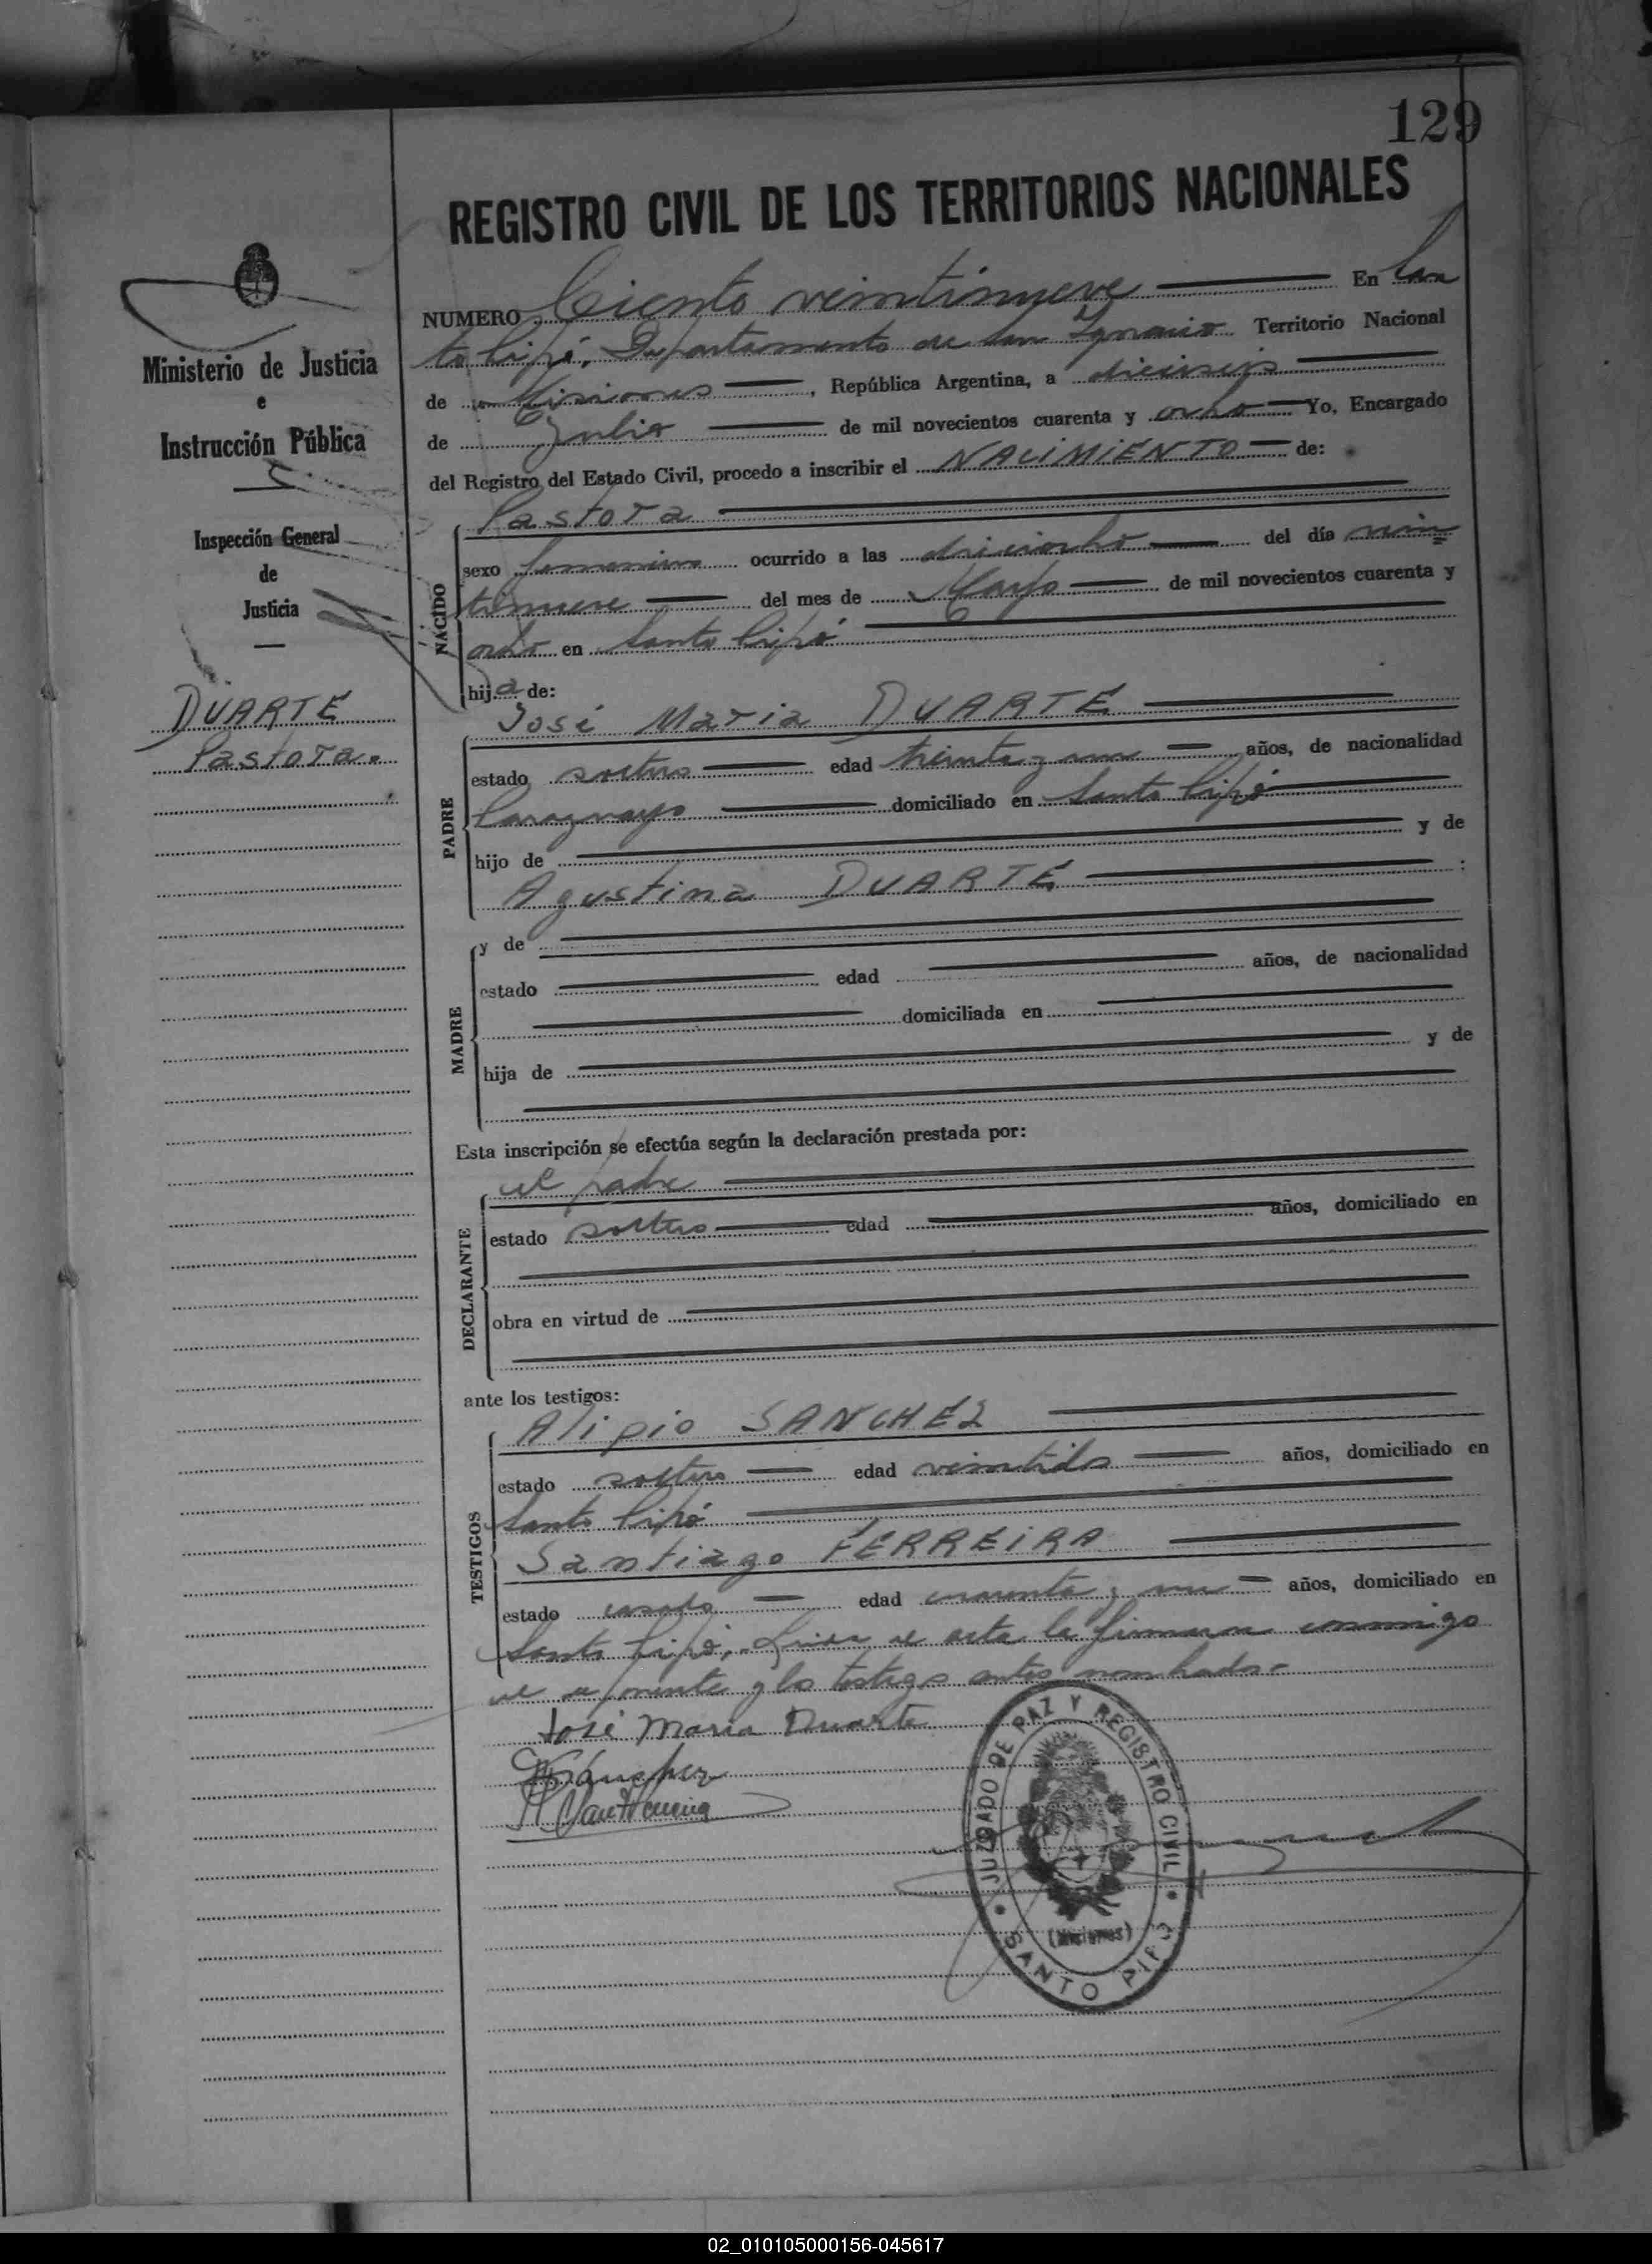 129
REGISTRO CIVIL DE LOS TERRITORIOS NACIONALES
Ministerio de Justicia
e
Instrucción Pública
Inspección General
de
Justicia
DUARTE
Pastora.
NUMERO Ciento veintinueve En San
to Pipó, Departamento de San Ignacio Territorio Nacional
de Misiones, República Argentina, a dieciseis
de Julio de mil novecientos cuarenta y ocho Yo, Encargado
del Registro del Estado Civil, procedo a inscribir el NACIMIENTO de:
NACIDO
Pastora
sexo femenino ocurrido a las dieciocho del día vein
tinueve del mes de Mayo de mil novecientos cuarenta y
ocho en Santo Pipó
hija de:
PADRE
José Maria DUARTE
estado soltero edad treinta y un años, de nacionalidad
Paraguayo domiciliado en Santo Pipó
hijo de y de
Agustina DUARTE :
MADRE
y de
estado edad años, de nacionalidad
domiciliada en
hija de y de
Esta inscripción se efectúa según la declaración prestada por:
DECLARANTE
el padre
estado soltero edad años, domiciliado en
obra en virtud de
ante los testigos:
TESTIGOS
Alipio SANCHEZ
estado soltero edad veintidos años, domiciliado en
Santo Pipó
Santiago FERREIRA
estado casado edad cuarenta y un años, domiciliado en
Santo Pipó. Leida el acta la firmaron conmigo
el exponente y los testigos antes nombrados.-
José Maria Duarte
Sánchez
JUZGADO DE PAZ Y REGISTRO CIVIL
(Misiones)
SANTO PIPÓ
02_010105000156-045617